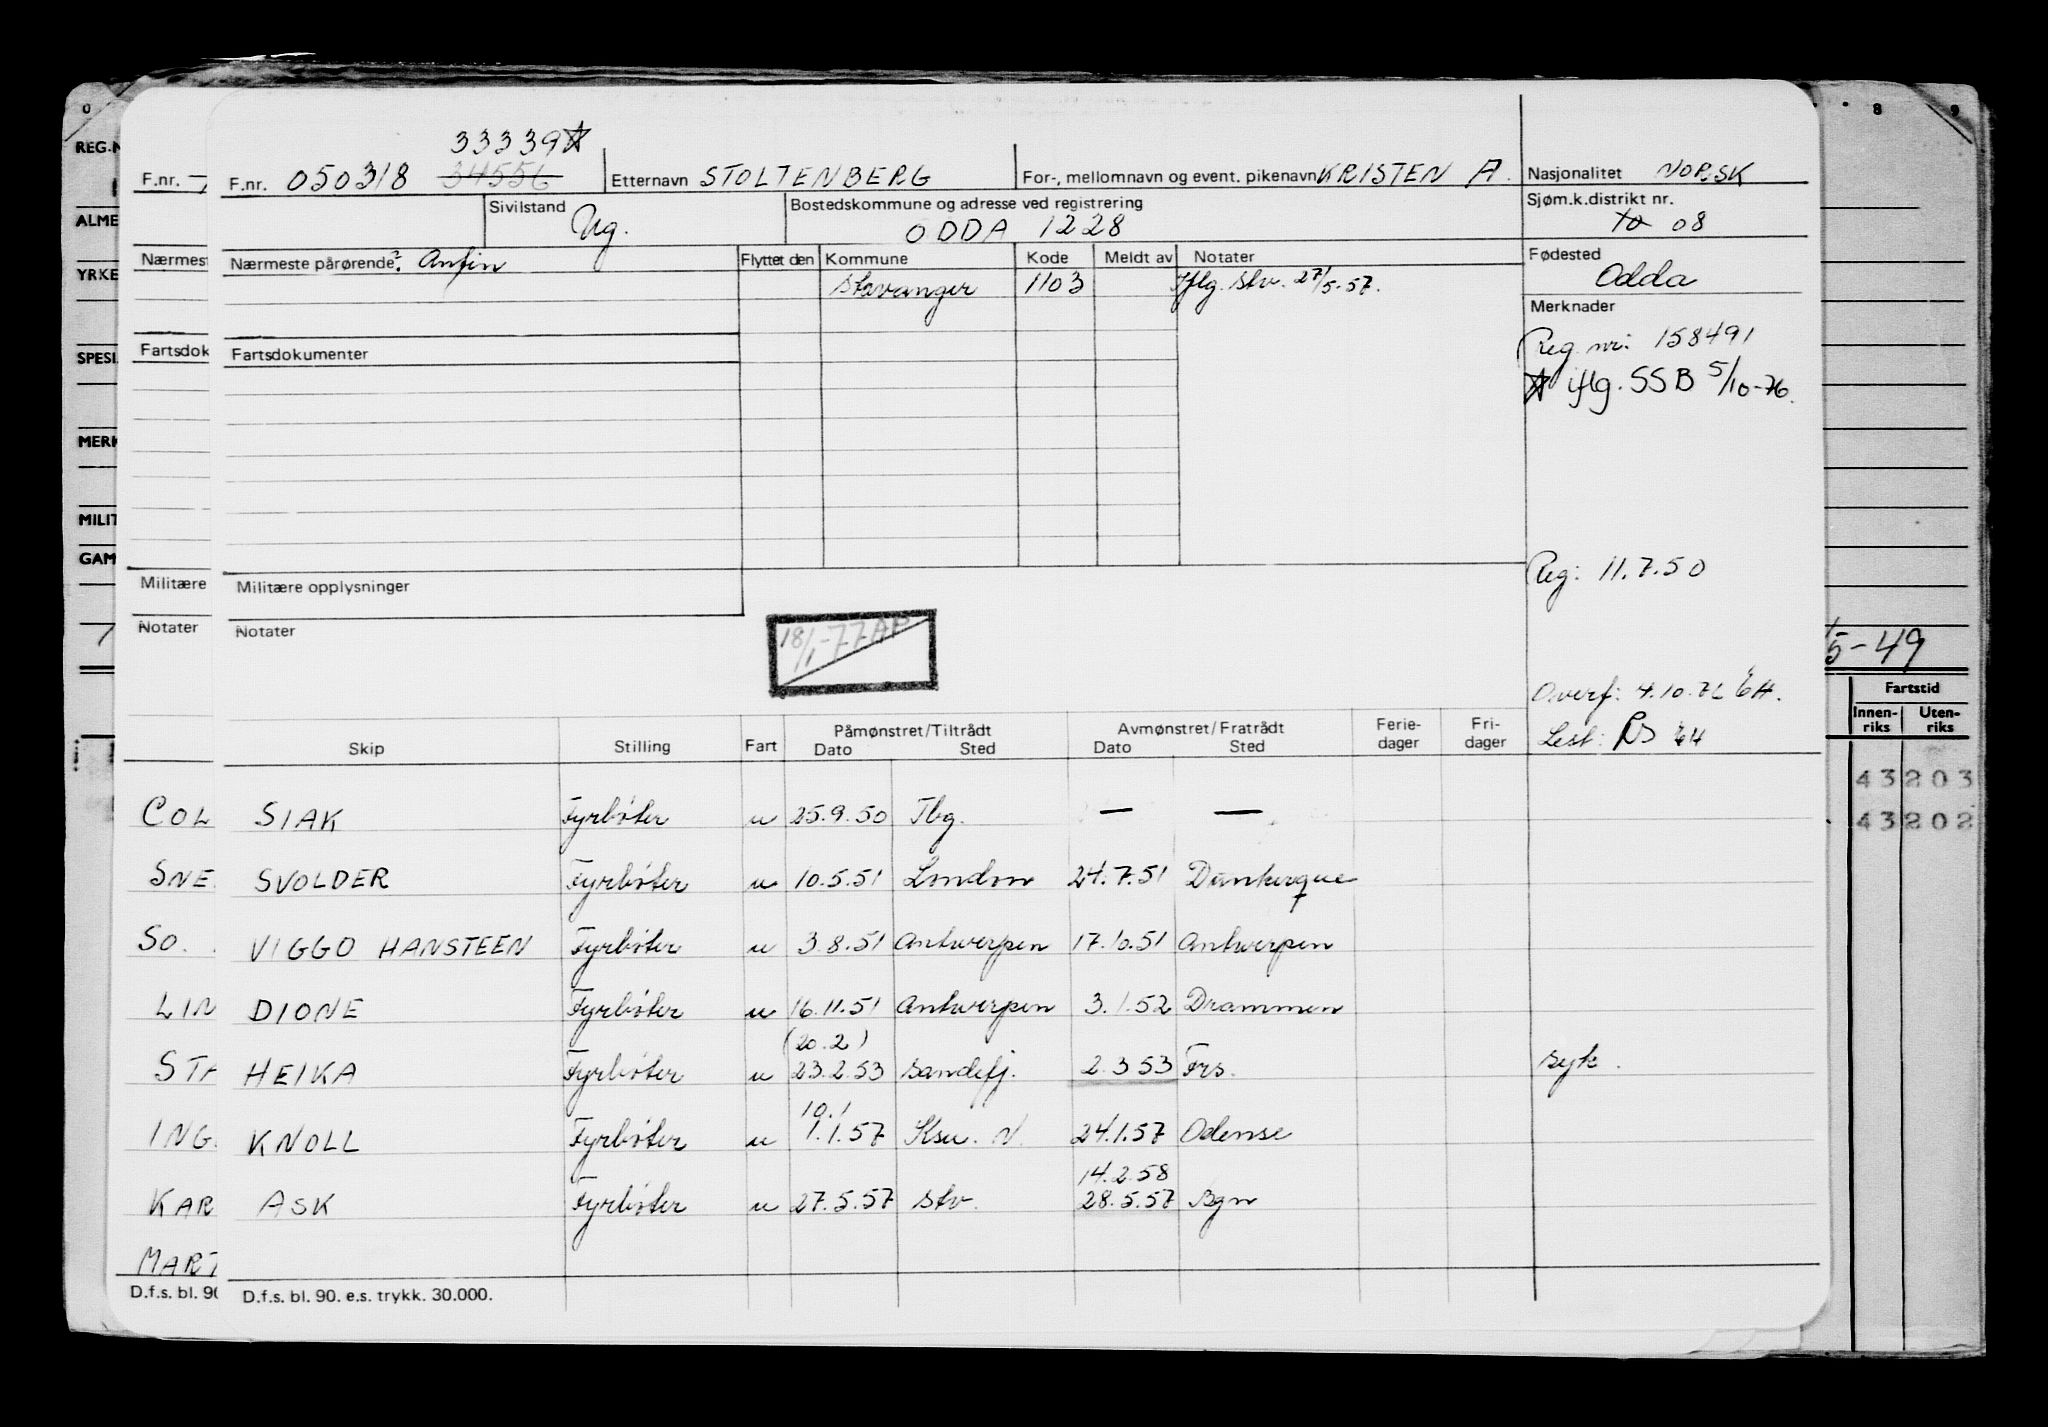 0 8 9
REG.N
ALME
YRKE
SPESI
MERK
MILIT
GAM
F.nr.
Nærmest
Fartsdok
Militære
Notater
33339☆
F.nr. 050318 34556 Etternavn STOLTENBERG For-, mellomnavn og event. pikenavn KRISTEN A. Nasjonalitet NORSK
Sivilstand Ug. Bostedskommune og adresse ved registrering ODDA 1228 Sjøm.k.distrikt nr. 10 08
Nærmeste pårørende: Anfin Flyttet den Kommune Kode Meldt av Notater Fødested Odda
Stavanger 1103 Iflg. Stv. 27/5-57.
Merknader
Reg nr: 158491
☆ iflg. SSB 5/10-76.
Fartsdokumenter
Reg: 11.7.50
Militære opplysninger
Notater
18/1-77 AP
5-49
Overf: 4.10.76
Lest:
Fartstid
Innen-riks Uten-riks
43203
43202
Skip Stilling Fart Påmønstret/Tiltrådt Dato Sted Avmønstret/Fratrådt Dato Sted Ferie-dager Fri-dager
COL SIAK Fyrbøter u 25.9.50 Tbg. — —
SNE. SVOLDER Fyrbøter u 10.5.51 London 24.7.51 Dunkerque
SO. VIGGO HANSTEEN Fyrbøter u 3.8.51 Antwerpen 17.10.51 Antwerpen
LIN DIONE Fyrbøter u 16.11.51 Antwerpen 3.1.52 Drammen
(20.2)
STA HEIKA Fyrbøter u 23.2.53 Sandefj. 2.3 53 Frs. syk.
10.1
ING. KNOLL Fyrbøter u 1.1.57 Ksu. N. 24.1.57 Odense
14.2.58
KAR ASK Fyrbøter u 27.5.57 Stv. 28.5.57 Bgn
MART
D.f.s. bl. 90 D.f.s. bl. 90. e.s. trykk. 30.000.